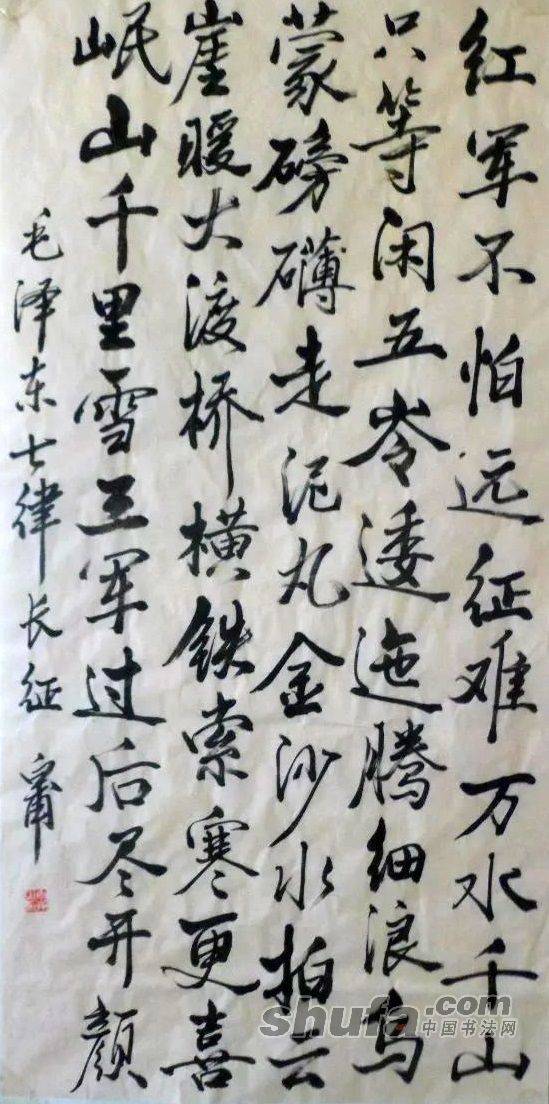 红军不怕远征难万水千山
只等闲五岺逶迤腾细浪乌
蒙磅礴走泥丸金沙水拍云
崖暖大渡桥横铁索寒更喜
岷山千里雪三军过后尽开颜
毛泽东七律长征
shufa.com
中国书法网